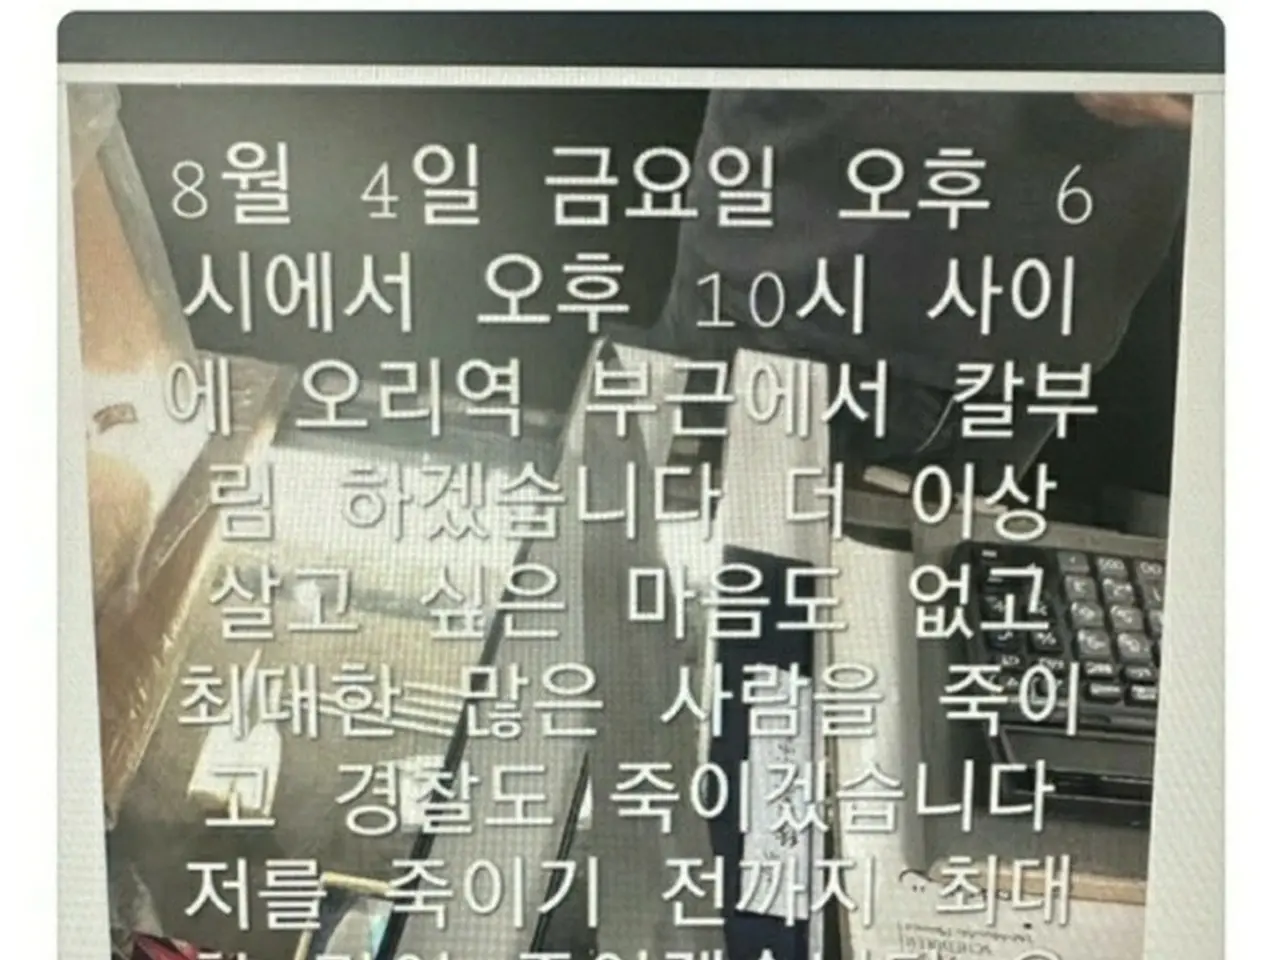 8월 4일 금요일 오후 6
시에서 오후 10시 사이
에 오리역 부근에서 칼부
림 하겠습니다 더 이상
살고 싶은 마음도 없고
최대한 많은 사람을 죽이
고 경찰도 죽이겠습니다
저를 죽이기 전까지 최대